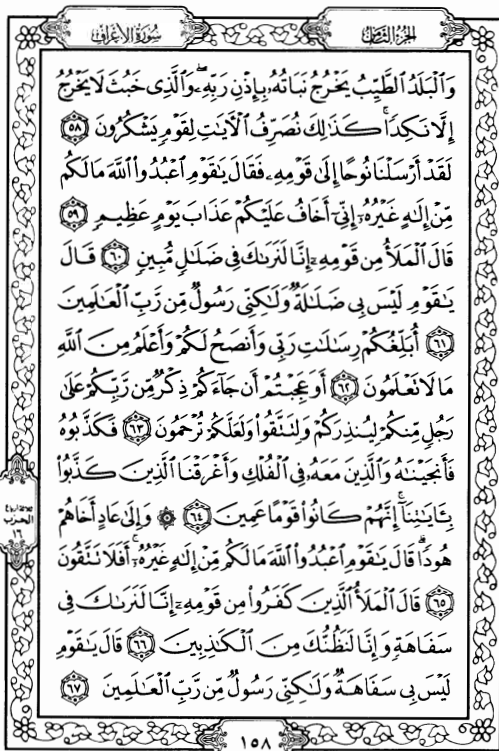 سُورَةُ الأَعْرَافِ
الجُزْءُ الثَّامِنُ
وَالْبَلَدُ الطَّيِّبُ يَخْرُجُ نَبَاتُهُ بِإِذْنِ رَبِّهِ ۖ وَالَّذِي خَبُثَ لَا يَخْرُجُ
إِلَّا نَكِدًا ۚ كَذَٰلِكَ نُصَرِّفُ الْآيَاتِ لِقَوْمٍ يَشْكُرُونَ ٥٨
لَقَدْ أَرْسَلْنَا نُوحًا إِلَىٰ قَوْمِهِ فَقَالَ يَٰقَوْمِ اعْبُدُوا اللَّهَ مَا لَكُم
مِّنْ إِلَٰهٍ غَيْرُهُ إِنِّي أَخَافُ عَلَيْكُمْ عَذَابَ يَوْمٍ عَظِيمٍ ٥٩
قَالَ الْمَلَأُ مِن قَوْمِهِ إِنَّا لَنَرَىٰكَ فِي ضَلَٰلٍ مُّبِينٍ ٦٠ قَالَ
يَٰقَوْمِ لَيْسَ بِي ضَلَٰلَةٌ وَلَٰكِنِّي رَسُولٌ مِّن رَّبِّ الْعَٰلَمِينَ
٦١ أُبَلِّغُكُمْ رِسَٰلَٰتِ رَبِّي وَأَنصَحُ لَكُمْ وَأَعْلَمُ مِنَ اللَّهِ
مَا لَا تَعْلَمُونَ ٦٢ أَوَعَجِبْتُمْ أَن جَاءَكُمْ ذِكْرٌ مِّن رَّبِّكُمْ عَلَىٰ
رَجُلٍ مِّنكُمْ لِيُنذِرَكُمْ وَلِتَتَّقُوا وَلَعَلَّكُمْ تُرْحَمُونَ ٦٣ فَكَذَّبُوهُ
فَأَنجَيْنَٰهُ وَالَّذِينَ مَعَهُ فِي الْفُلْكِ وَأَغْرَقْنَا الَّذِينَ كَذَّبُوا
بِـَٔايَٰتِنَا ۚ إِنَّهُمْ كَانُوا قَوْمًا عَمِينَ ٦٤ ۞ وَإِلَىٰ عَادٍ أَخَاهُمْ
هُودًا ۗ قَالَ يَٰقَوْمِ اعْبُدُوا اللَّهَ مَا لَكُم مِّنْ إِلَٰهٍ غَيْرُهُ ۚ أَفَلَا تَتَّقُونَ
٦٥ قَالَ الْمَلَأُ الَّذِينَ كَفَرُوا مِن قَوْمِهِ إِنَّا لَنَرَىٰكَ فِي
سَفَاهَةٍ وَإِنَّا لَنَظُنُّكَ مِنَ الْكَٰذِبِينَ ٦٦ قَالَ يَٰقَوْمِ
لَيْسَ بِي سَفَاهَةٌ وَلَٰكِنِّي رَسُولٌ مِّن رَّبِّ الْعَٰلَمِينَ ٦٧
الحزب
١٦
١٥٨